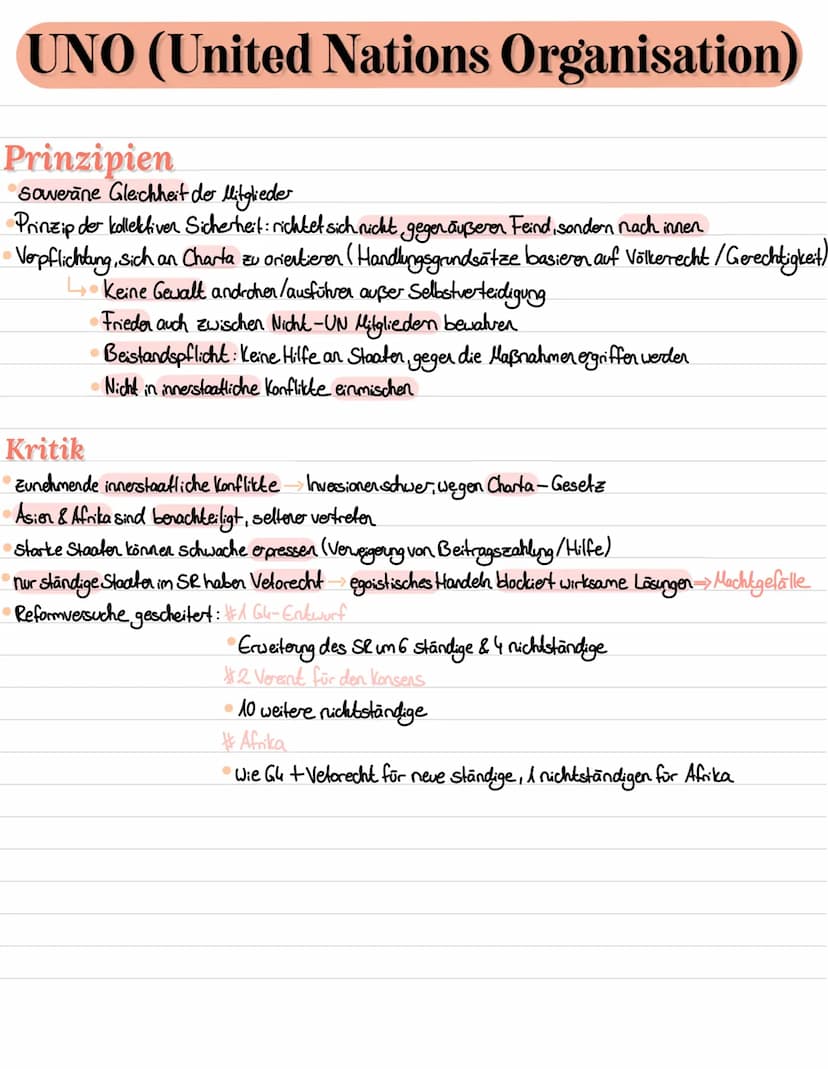 UNO (United Nations Organisation)
Prinzipien
• souveräne Gleichheit der Mitglieder
• Prinzip der kollektiven Sicherheit: richtet sich nicht gegen äußeren Feind, sondern nach innen
• Verpflichtung, sich an Charta zu orientieren (Handlungsgrundsätze basieren auf Völkerrecht / Gerechtigkeit)
↳ • Keine Gewalt androhen/ausführen außer Selbstverteidigung
• Frieden auch zwischen Nicht-UN Mitgliedern bewahren
• Beistandspflicht: Keine Hilfe an Staaten, gegen die Maßnahmen ergriffen werden
• Nicht in innerstaatliche Konflikte einmischen
Kritik
• Zunehmende innerstaatliche Konflikte → Invasionen schwer, wegen Charta-Gesetz
• Asien & Afrika sind benachteiligt, seltener vertreten
• starke Staaten können schwache erpressen (Verweigerung von Beitragszahlung/Hilfe)
• nur ständige Staaten im SR haben Vetorecht → egoistisches Handeln blockiert wirksame Lösungen → Machtgefälle
• Reformversuche gescheitert: #1 G4-Entwurf
• Erweiterung des SR um 6 ständige & 4 nichtständige
#2 Vereint für den Konsens
• 10 weitere nichtständige
# Afrika
• Wie G4 + Vetorecht für neue ständige, 1 nichtständigen für Afrika